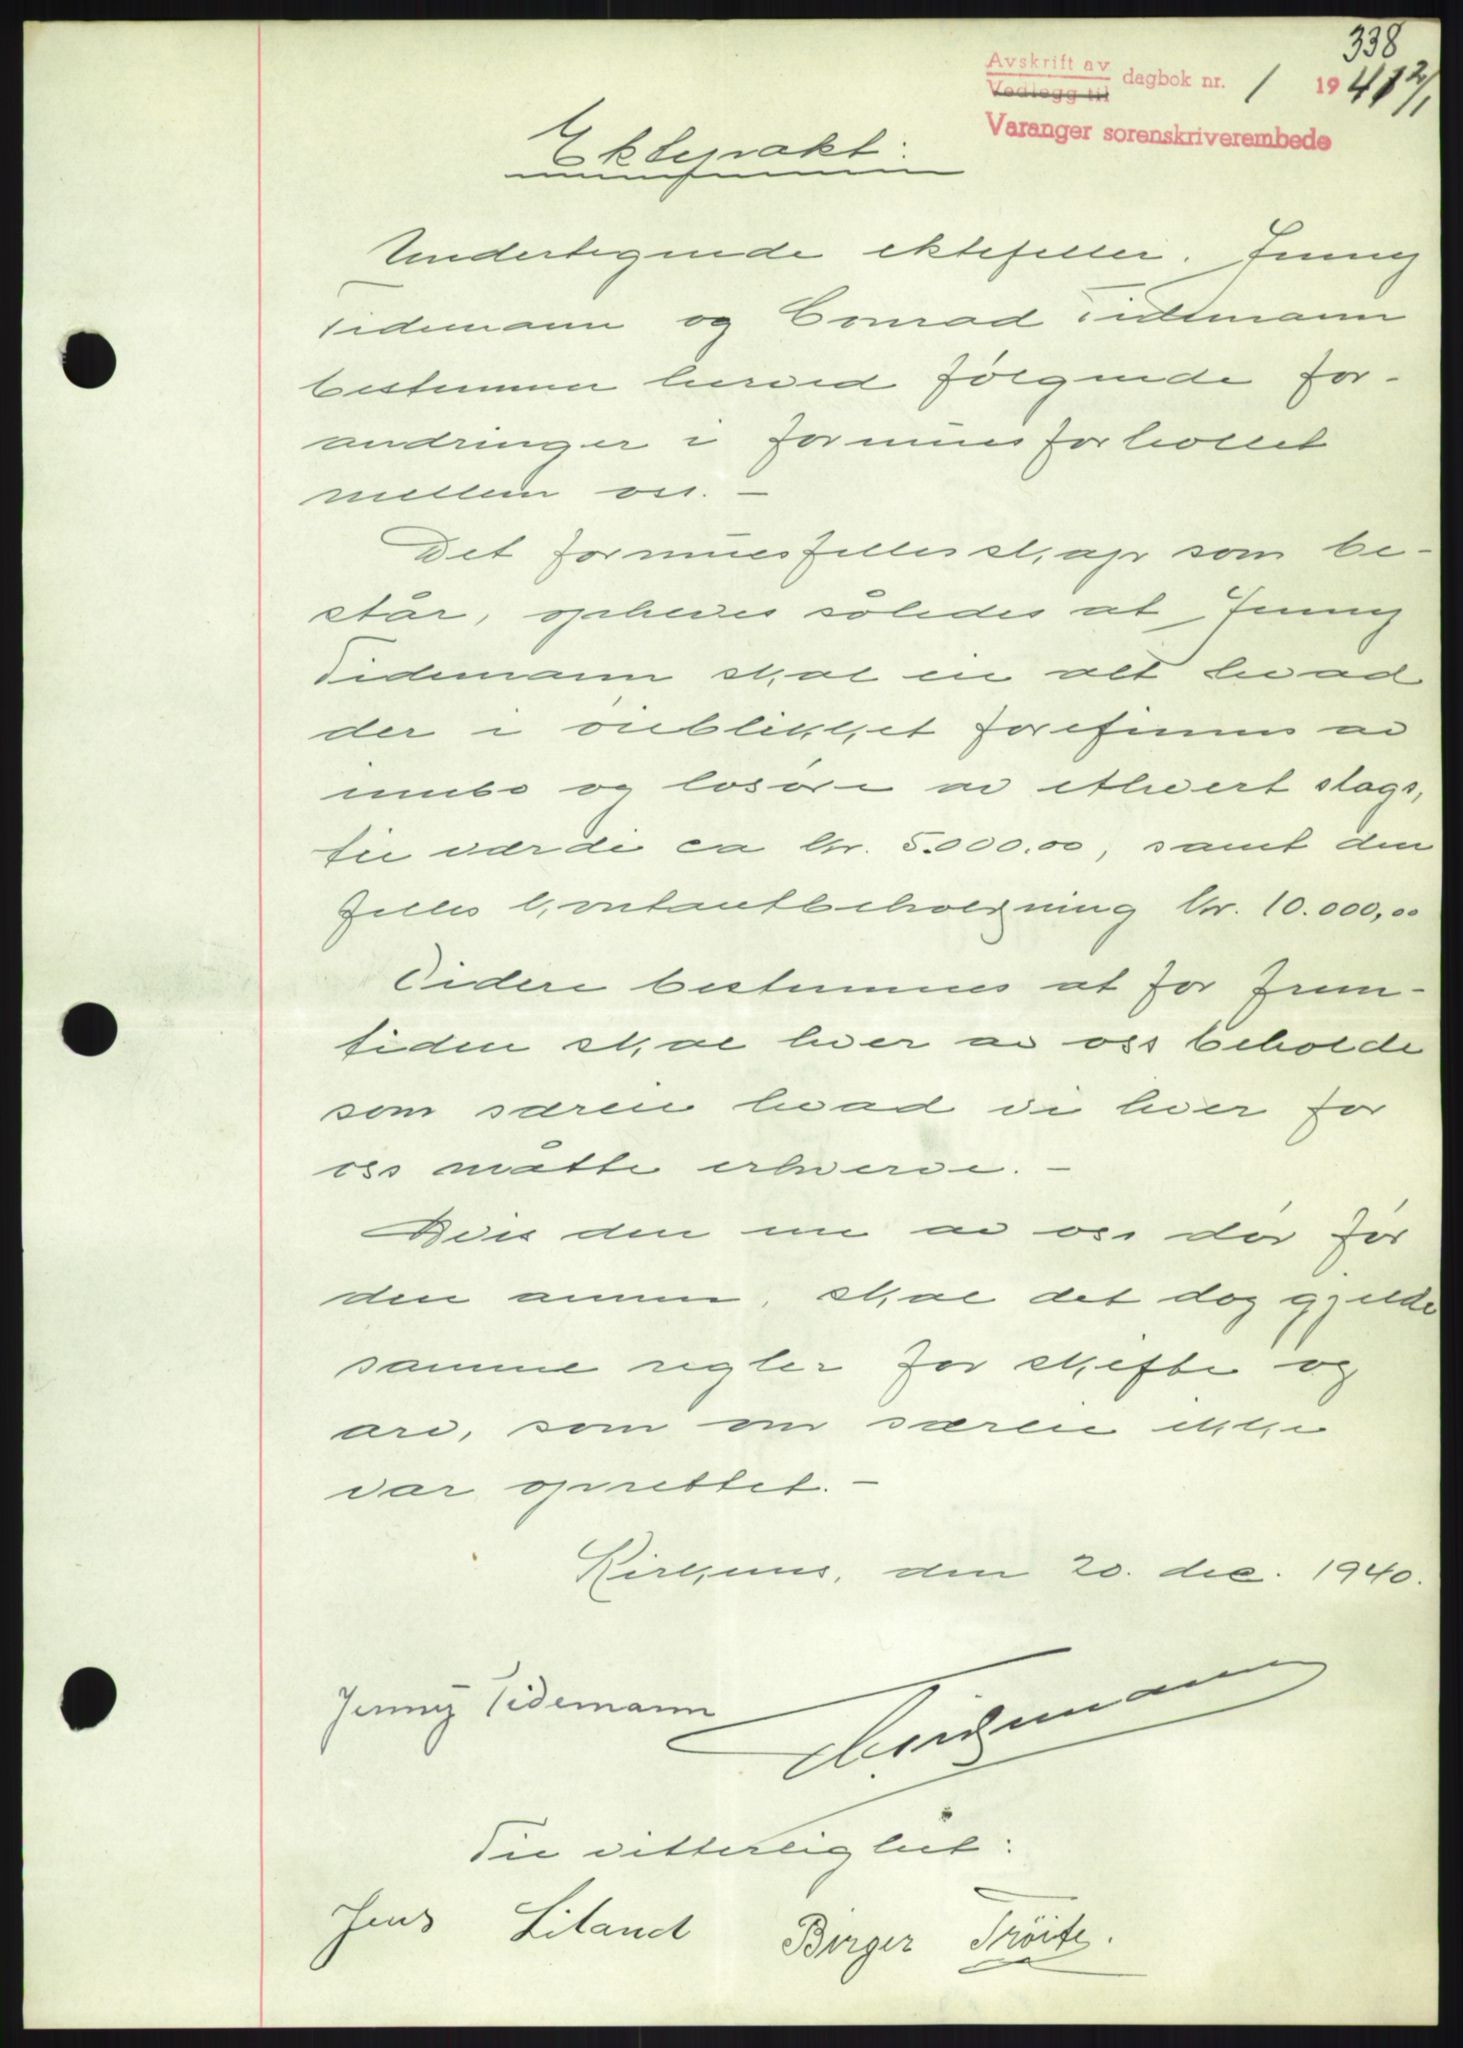 338
Avskrift av
Vedlegg til
dagbok nr. 1 1941 2/1
Varanger sorenskriverembede
Ektepakt:
Undertegnede ektefeller, Jenny
Tidemann og Conrad Tidemann
bestemmer herved følgende for-
andringer i formuesforholdet
mellem oss. —
Det formuesfellesskap som be-
står, opheves således at Jenny
Tidemann skal eie alt hvad
der i øieblikket forefinnes av
innbo og løsøre av ethvert slags,
til værdi ca kr. 5.000.00, samt den
felles kontantbeholdning kr. 10.000,00
Videre bestemmes at for frem-
tiden skal hver av oss beholde
som særeie hvad vi hver for
oss måtte erhverve. —
Hvis den ene av oss dør før
den annen, skal det dog gjelde
samme regler for skifte og
arv, som om særeie ikke
var oprettet. —
Kirkenes, den 20. dec. 1940.
Jenny Tidemann
C. Tidemann
Til vitterlighet:
Jens Liland Birger Trøite.